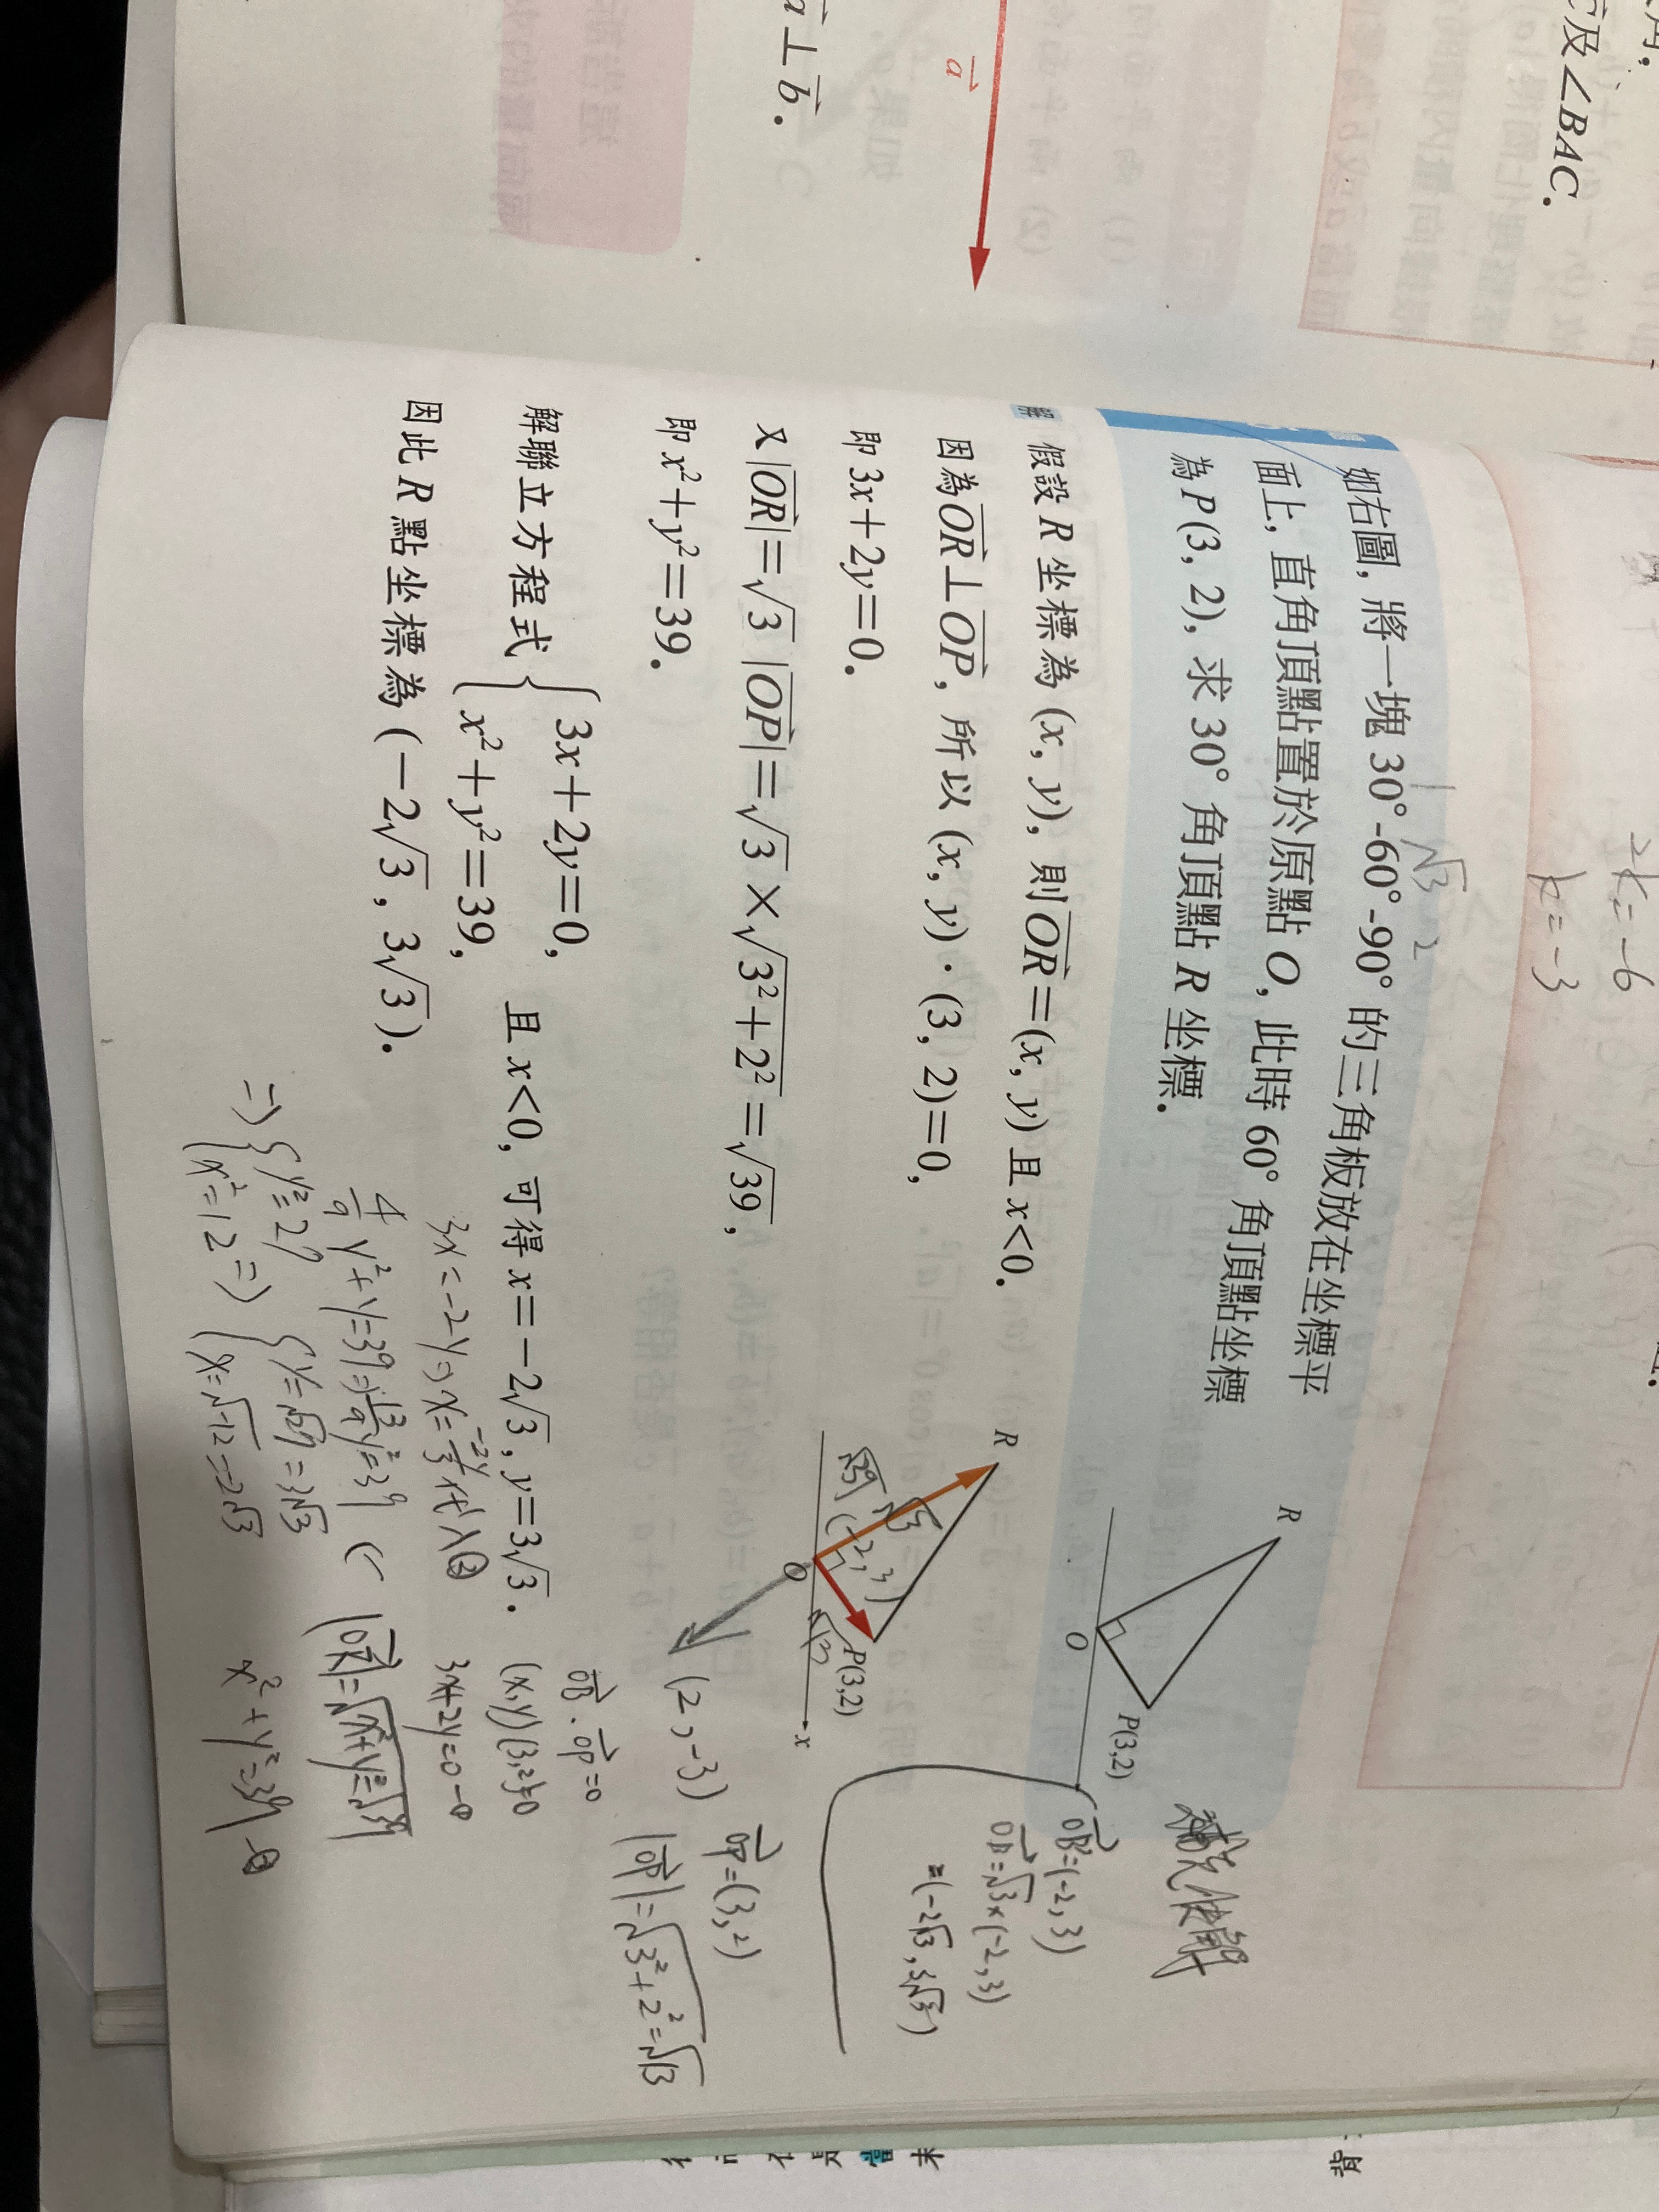 C及∠BAC.
a
a⊥b.
2k=-6
k=-3
如右圖,將一塊 30°-60°-90° 的三角板放在坐標平
1 √3 2
面上,直角頂點置於原點 O,此時 60° 角頂點坐標
為 P(3, 2),求 30° 角頂點 R 坐標.
R
O
P(3,2)
解
假設 R 坐標為 (x, y),則 OR=(x, y) 且 x<0.
因為 OR⊥OP,所以 (x, y)·(3, 2)=0,
即 3x+2y=0.
又 |OR|=√3 |OP|=√3×√3²+2²=√39,
即 x²+y²=39.
解聯立方程式 { 3x+2y=0,
x²+y²=39,
且 x<0,可得 x=-2√3, y=3√3.
因此 R 點坐標為 (-2√3, 3√3).
R
√39
√3
(-2,3)
O
√13
P(3,2)
x
(2,-3)
OB'=(-2,3)
OB=√3×(-2,3)
=(-2√3,3√3)
OP=(3,2)
|OP|=√3²+2²=√13
OB·OP=0
(x,y)(3,2)=0
3x+2y=0-①
|OR|=√x²+y²=√39
x²+y²=39-②
3x=-2y⇒x=-2y/3代入②
4/9y²+y²=39⇒13/9y²=39
⇒{y²=27
x²=12⇒{y=√27=3√3
x=√12=-2√3